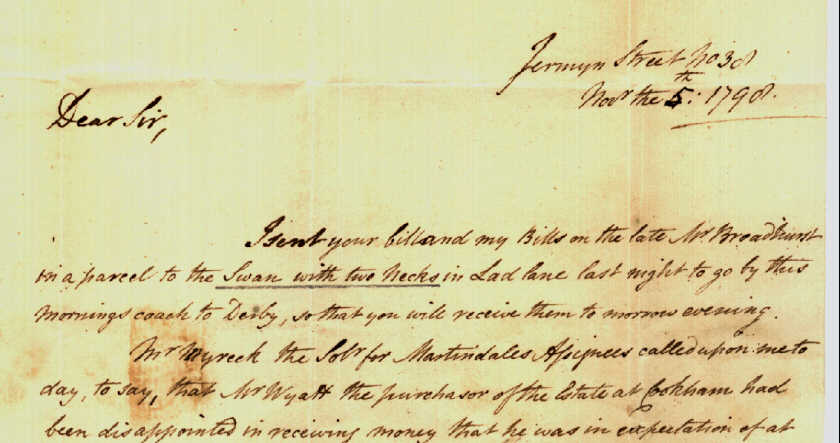 Jermyn Street No 38
Novr the 5th: 1798.
Dear Sir,
I sent your bill and my Bills on the late Mr Broadhurst
in a parcel to the Swan with two Necks in Lad lane last night to go by this
mornings coach to Derby, so that you will receive them to morrow evening.
Mr Wyreck the Solr for Martindales Assignees called upon me to
day, to say, that Mr Wyatt the purchasor of the Estate at Cookham had
been disappointed in receiving money that he was in expectation of at